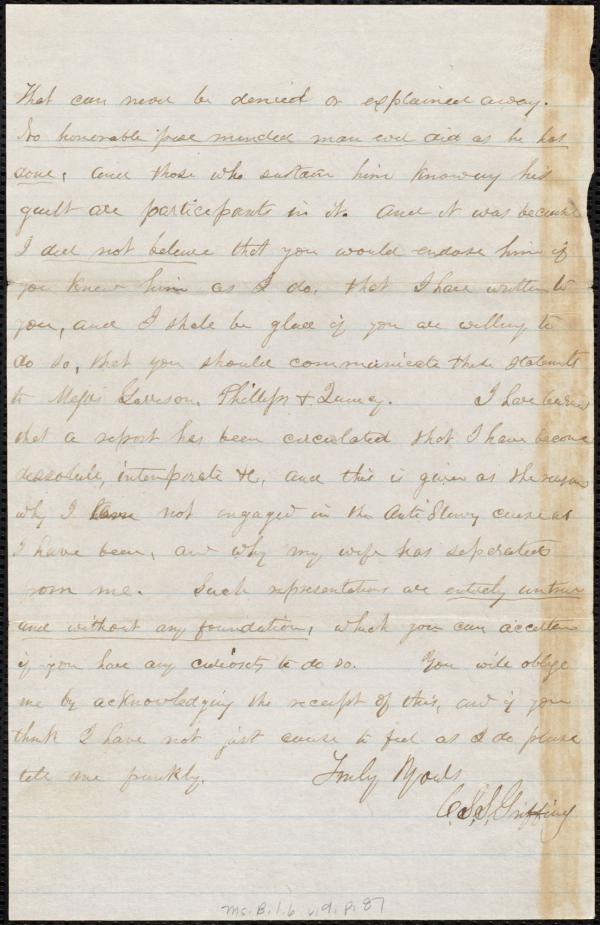 That can never be denied or explained away.
No honorable pure minded man will did as he has
done, and those who sustain him knowing his
guilt are participants in it. And it was because
I did not believe that you would endose him if
you knew him as I do, that I have written to
you, and I shall be glad if you are willing to
do so, that you should communicate these statements
to Messrs Garrison, Phillips & Quincy. I have learned
that a report has been circulated that I have become
dissolute, intemperate &c, and this is given as the reason
why I am not engaged in the Anti Slavery cause as
I have been, and why my wife has seperated
from me. Such representations are entirely untrue
and without any foundation, which you can
if you have any curiosity to do so. You will oblige
me by acknowledging the receipt of this, and if you
think I have not just cause to feel as I do please
tell me frankly. Truly Yours
C.S.S. Griffing
Ms. B. 1. 6 v. 9, p. 87